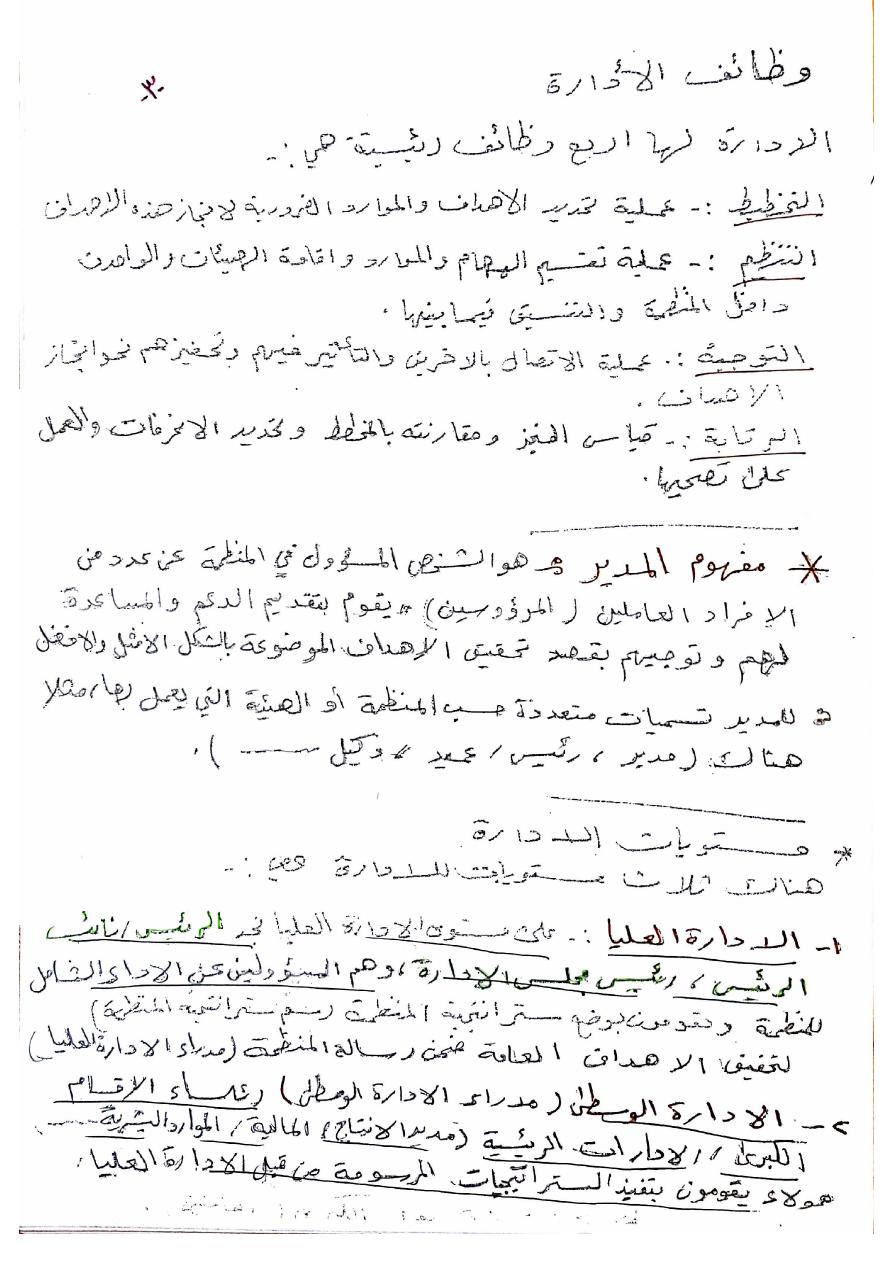 وظائف الأدارة
-٣-
الادارة لها اربع وظائف رئيسية هي :-
التخطيط :- عملية تحديد الاهداف والموارد الضرورية لانجاز هذه الاهداف
التنظيم :- عملية تقسيم المهام والموارد واقامة الهيئات والواحدت
داخل المنظمة والتنسيق فيما بينها .
التوجية :- عملية الاتصال بالاخرين والتأثير فيهم وتحفيزهم نحو انجاز
الاهداف .
الرقابة :- قياس المنجز ومقارنته بالمخطط وتحديد الانحرفات والعمل
على تصحيها .
* مفهوم المدير :- هو الشخص المسؤول في المنظمة عن عدد من
الافراد العاملين ( المرؤوسين ) يقوم بتقديم الدعم والمساعدة
لهم وتوجيهم بقصد تحقيق الاهداف الموضوعة بالشكل الامثل والافضل
للمدير تسميات متعددة حسب المنظمة أو الهيئة التي يعمل بها، مثلا
هناك ( مدير ، رئيس / عميد ، وكيل ---- ) .
* مستويات الادارة
هناك ثلاث مستويات للادارة هي :-
١- الادارة العليا :- على مستوى الادارة العليا نجد الرئيس / نائب
الرئيس ، رئيس مجلس الادارة ، وهم المسؤولين عن الاداء الشامل
للمنظمة ويقومون بوضع ستراتيجية المنظمة ( رسم ستراتيجية المنظمة )
لتحقيق الاهداف العامة ضمن رسالة المنظمة ( مدراء الادارة العليا )
٢- الادارة الوسطى ( مدراء الادارة الوسطى ) رئساء الاقسام
الكبرى / الادارات الرئيسية ( مدير الانتاج / المالية / الموارد البشرية ----
هولاء يقومون بتنفيذ الستراتيجيات المرسومة من قبل الادارة العليا .